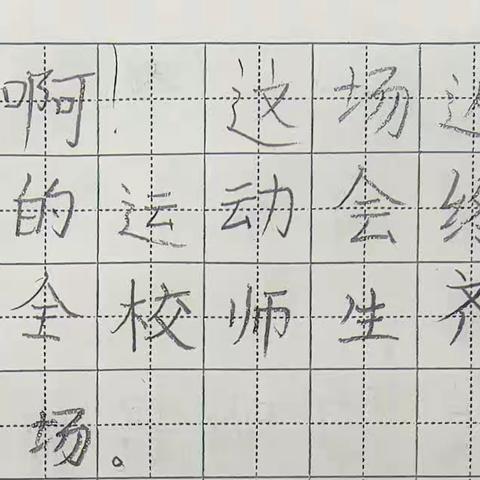 啊！这场
的运动会
全校师生齐
场。